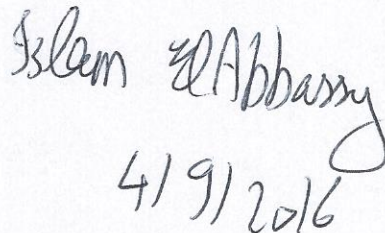 Islam ElAbbassy
4/9/2016